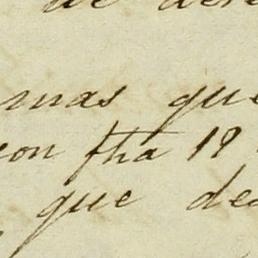 mas que
con fha 19
que de